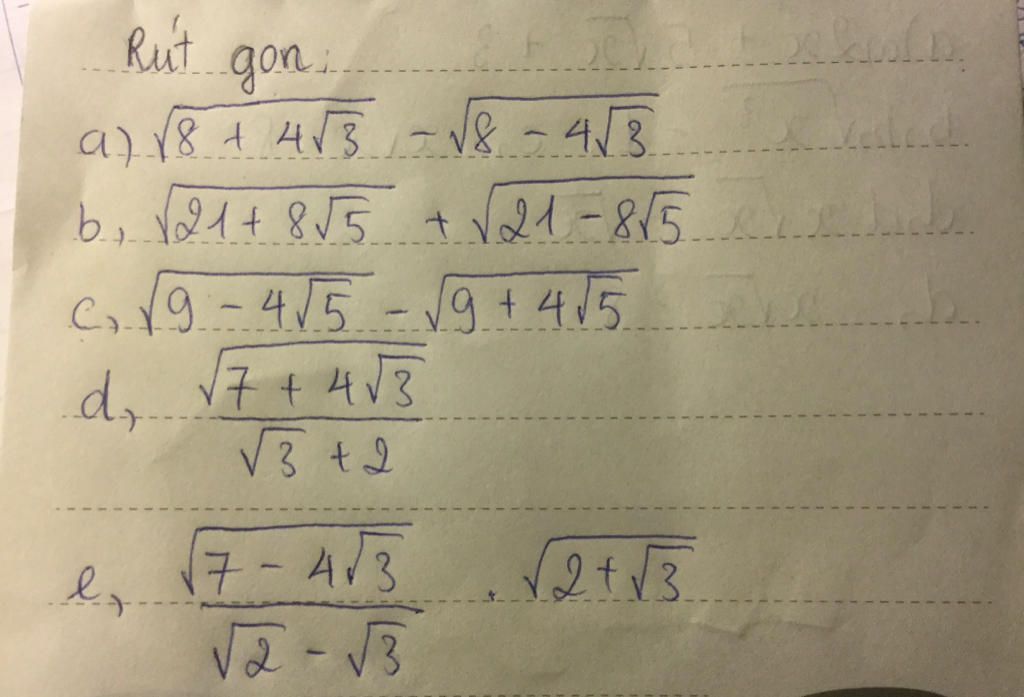 Rút gọn:
a) √(8 + 4√3) - √(8 - 4√3)
b, √(21 + 8√5) + √(21 - 8√5)
c, √(9 - 4√5) - √(9 + 4√5)
d, √(7 + 4√3) / (√3 + 2)
e, √(7 - 4√3) / (√2 - √3) . √(2 + √3)